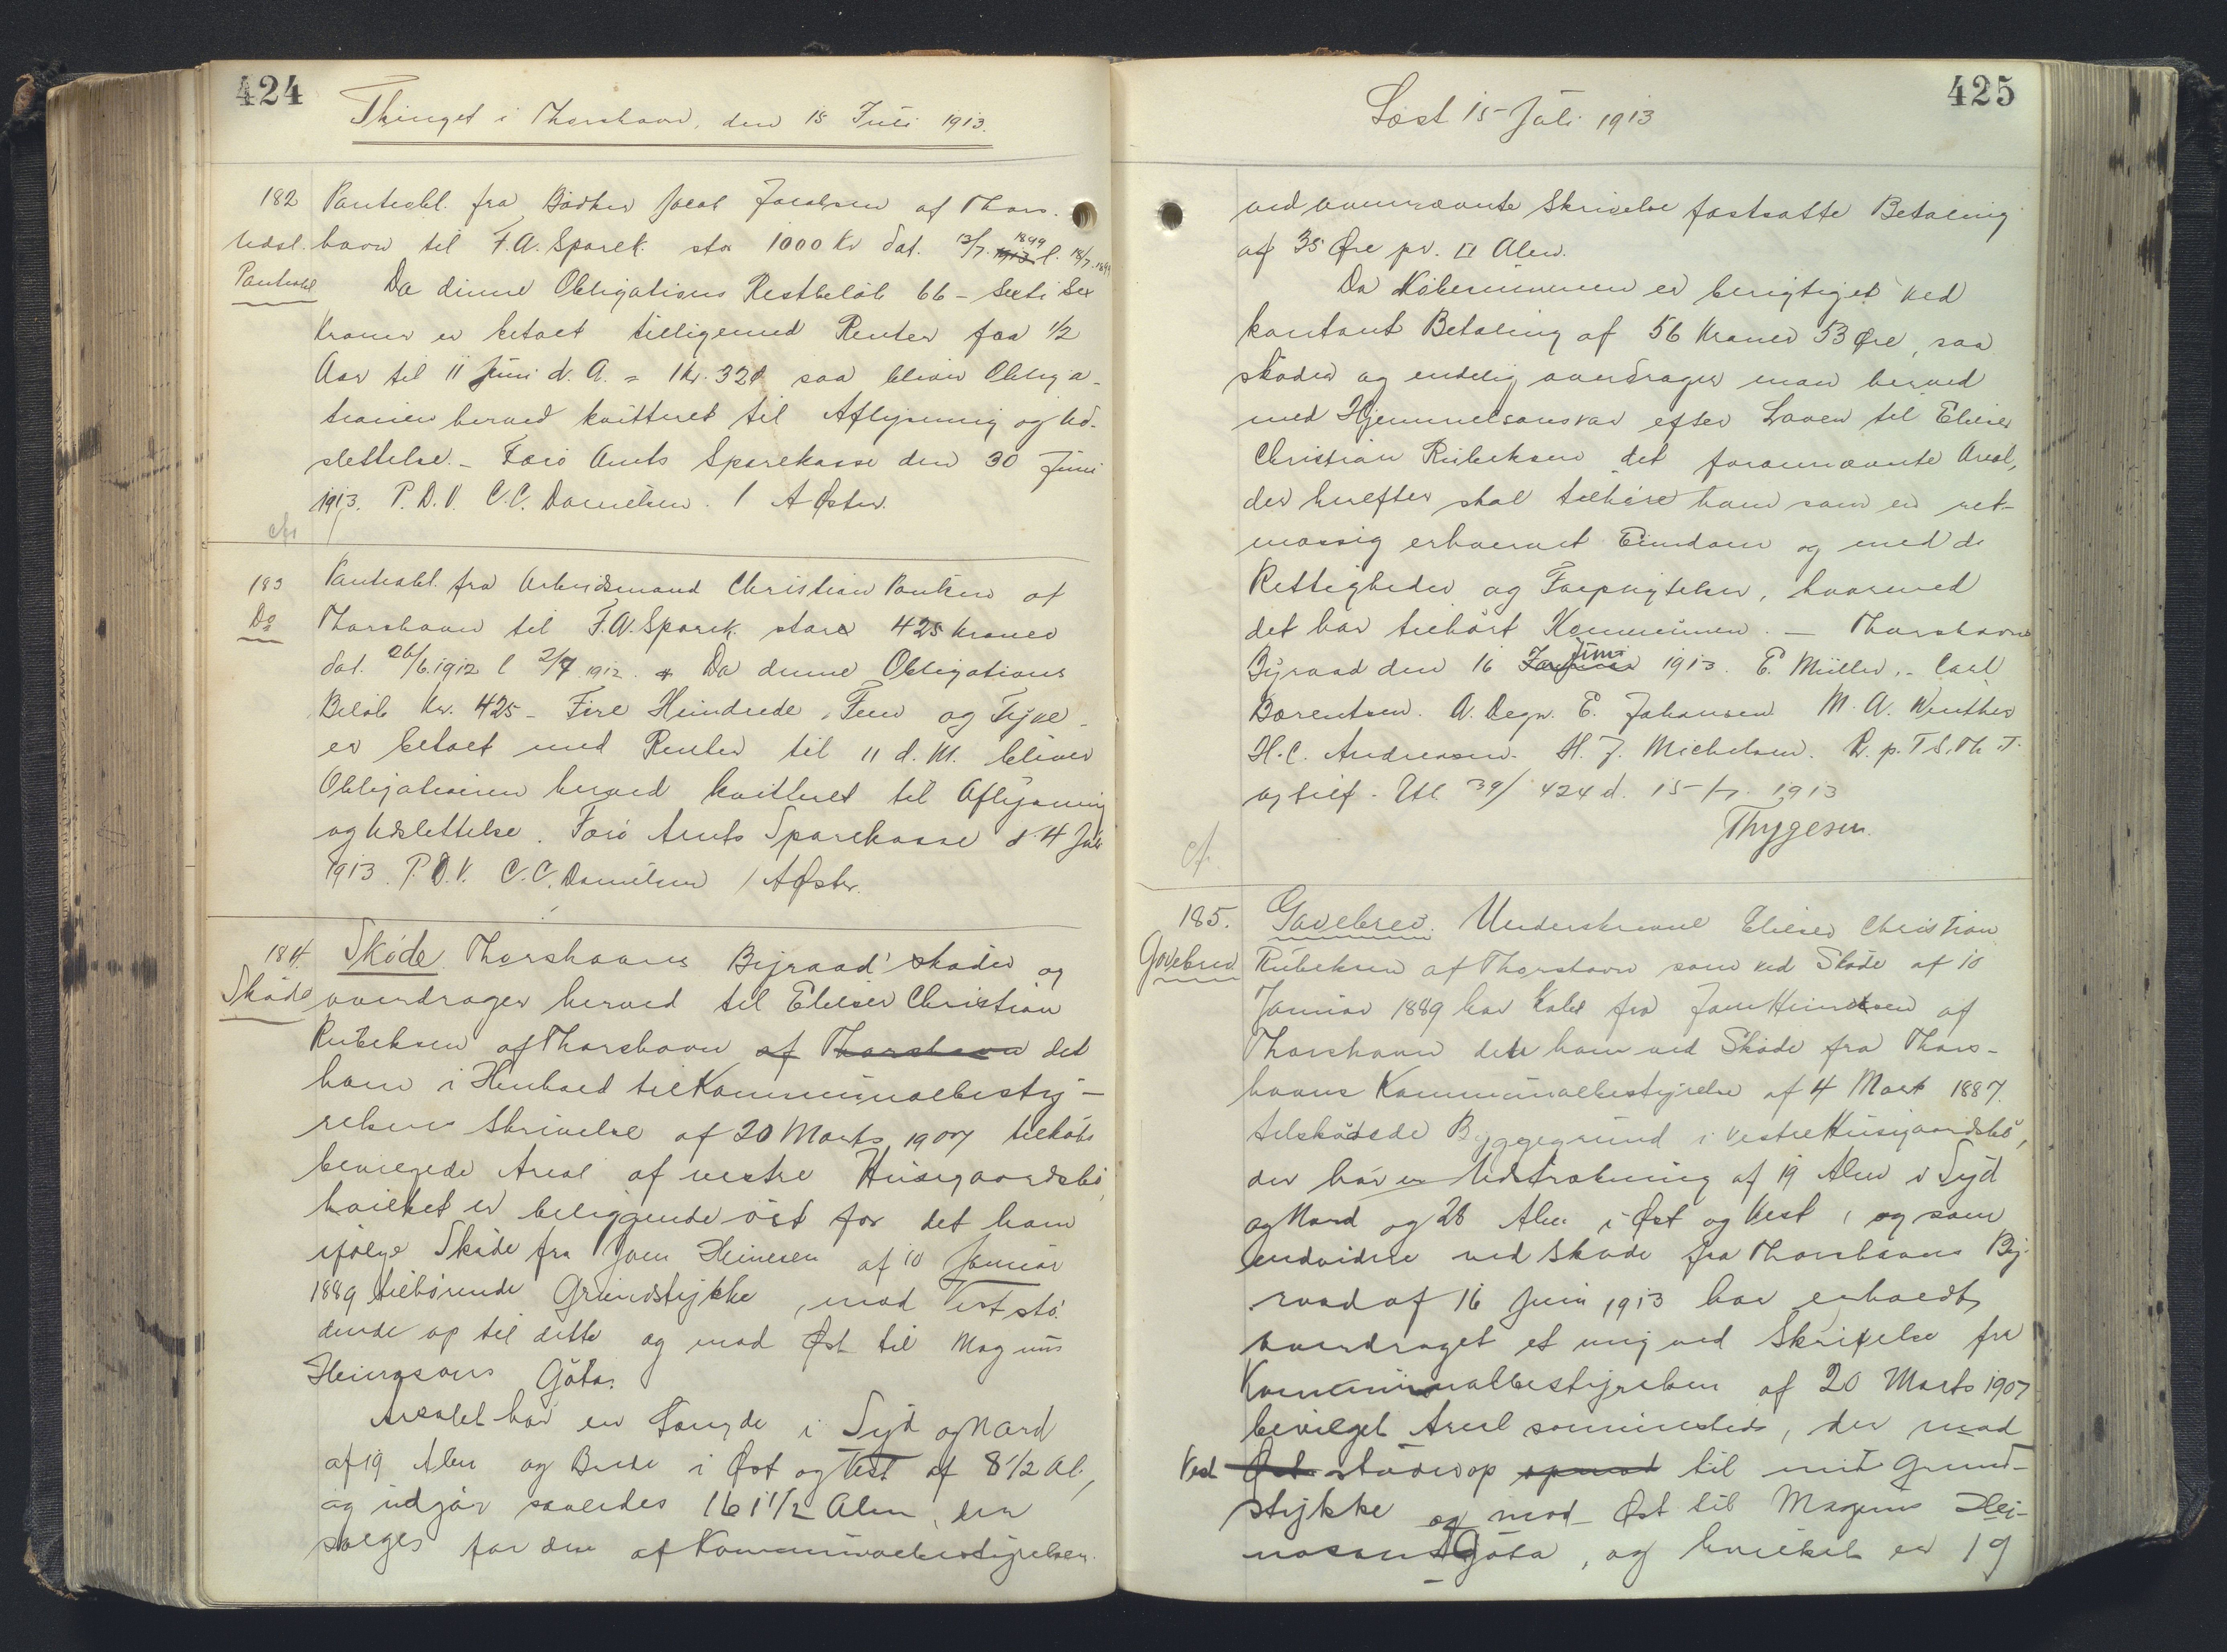 424
Thinget i Thorshavn, den 15 Juli 1913.
182 Panteobl. fra Bødker Jacob Jacobsen af Thors-
Udsl. havn til F.A. Sparek. stor 1000 Kr dat. 13/7. 1899 l. 18/7. 1899
Panteobl Da denne Obligations Restbeløb 66 - Sexti Sex
Kroner er betalt tilligemed Renter for 1/2
Aar til 11 Juni d. A. = 1 Kr. 32 Ø saa bliver Obliga-
tionen herved kvitteret til Aflysning og Ud-
slettelse. - Færø Amts Sparekasse den 30 Juni
1913. P.D.V. C.C. Danielsen. / A Øster.
183 Panteobl. fra Arbeidsmand Christian Poulsen af
Do Thorshavn til F.A. Sparek. stor 425 Kroner
dat. 26/6.1912 l 2/7 1912. Da denne Obligations
Beløb Kr. 425 - Fire Hundrede, Fem og Tyve -
er betalt med Renter til 11 d. M. bliver
Obligationen herved kvitteret til Aflysning
og Udslettelse. Færø Amts Sparekasse d. 4 Juli
1913. P.D.V. C.C. Danielsen / A Øster.
184. Skøde. Thorshavns Byraad skøder og
Skøde overdrager herved til Elieser Christian
Rubeksen af Thorshavn af Thorshavn det
ham i Henhold til Kommunalbesty-
relsens Skrivelse af 20 Marts 1907 tilkøbs
bevilgede Areal af vestre Húsagaardsbø,
hvilket er beliggende øst for det ham
ifølge Skøde fra Joen Heinesen af 10 Januar
1889 tilhørende Grundstykke, mod Vest stø-
dende op til dette og mod Øst til Magnus
Heinasons Gøta.
Arealet har en Længde i Syd og Nord
af 19 Alen og Brede i Øst og Vest af 8 1/2 Al,
og udgør saaledes 161 1/2 Alen, der
sælges for den af Kommunalbestyrelsen
425
Læst 15 Juli 1913
ved ovennævnte Skrivelse fastsatte Betaling
af 35 Øre pr. □ Alen.
Da Købesummen er berigtiget ved
kontant Betaling af 56 Kroner 53 Øre, saa
skøder og endelig overdrager man herved
med Hjemmelsansvar efter Loven til Elieser
Christian Rubeksen det forannævnte Areal,
der herefter skal tilhøre ham som en ret-
mæssig erhvervet Eiendom og med de
Rettigheder og Forpligtelser, hvormed
det har tilhørt Kommunen. - Thorshavns
Byraad den 16 Januar Juni 1913. E. Müller. - Carl
Børentsen. A. Degn. E. Johansen M. A. Winther
H.C. Andreasen. H. J. Michelsen. R. p. T S. Th. T.
og tilf. Utl. 39/ 424 d. 15-/7. 1913
Thygesen.
185. Gavebrev. Underskrevne Elieser Christian
Gavebrev Rubeksen af Thorshavn som ved Skøde af 10
Januar 1889 har købt fra Joen Heinesen af
Thorshavn den ham ved Skøde fra Thors-
havns Kommunalbestyrelse af 4 Marts 1887.
tilskødede Byggegrund i vestre Húsagaardsbø,
der har en Udstrækning af 19 Alen i Syd
og Nord og 28 Alen i Øst og Vest, og som
endvidere ved Skøde fra Thorshavns By-
raad af 16 Juni 1913 har erholdt
overdraget et mig ved Skrivelse fra
Kommunalbestyrelsen af 20 Marts 1907
bevilget Areal sammesteds, der mod
Vest Øst støder op opmod til mit Grund-
stykke og mod Øst til Magnus Hei-
nasons Gøta, og hvilket er 19